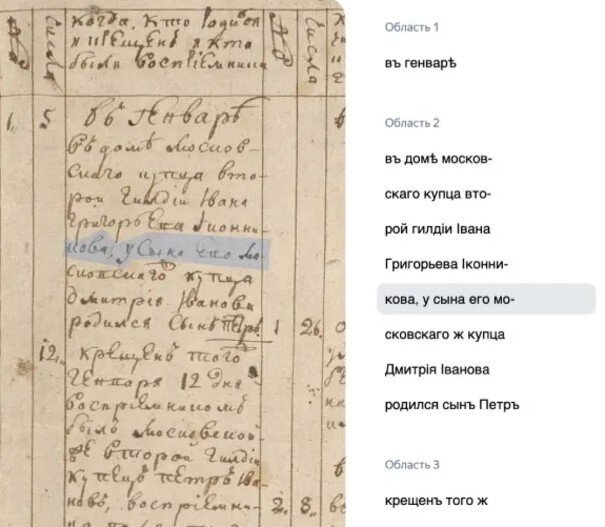 №
числа
когда кто родился
и крещенъ и кто
были воспріемники
№
числа
1.
5
въ генварѣ
въ домѣ москов-
скаго купца вто-
рой гилдіи Ивана
Григорьева Іконни-
кова, у сына его мо-
сковскаго ж купца
Дмитрія Іванова
родился сынъ Петръ
1
26
12.
крещенъ того ж
генваря 12 дня
воспріемникомъ
былъ московской
второй гилдіи
купецъ Петръ Ива-
новъ, воспріемни-
2.
8.
Область 1
въ генварѣ
Область 2
въ домѣ москов-
скаго купца вто-
рой гилдіи Івана
Григорьева Іконни-
кова, у сына его мо-
сковскаго ж купца
Дмитрія Іванова
родился сынъ Петръ
Область 3
крещенъ того ж